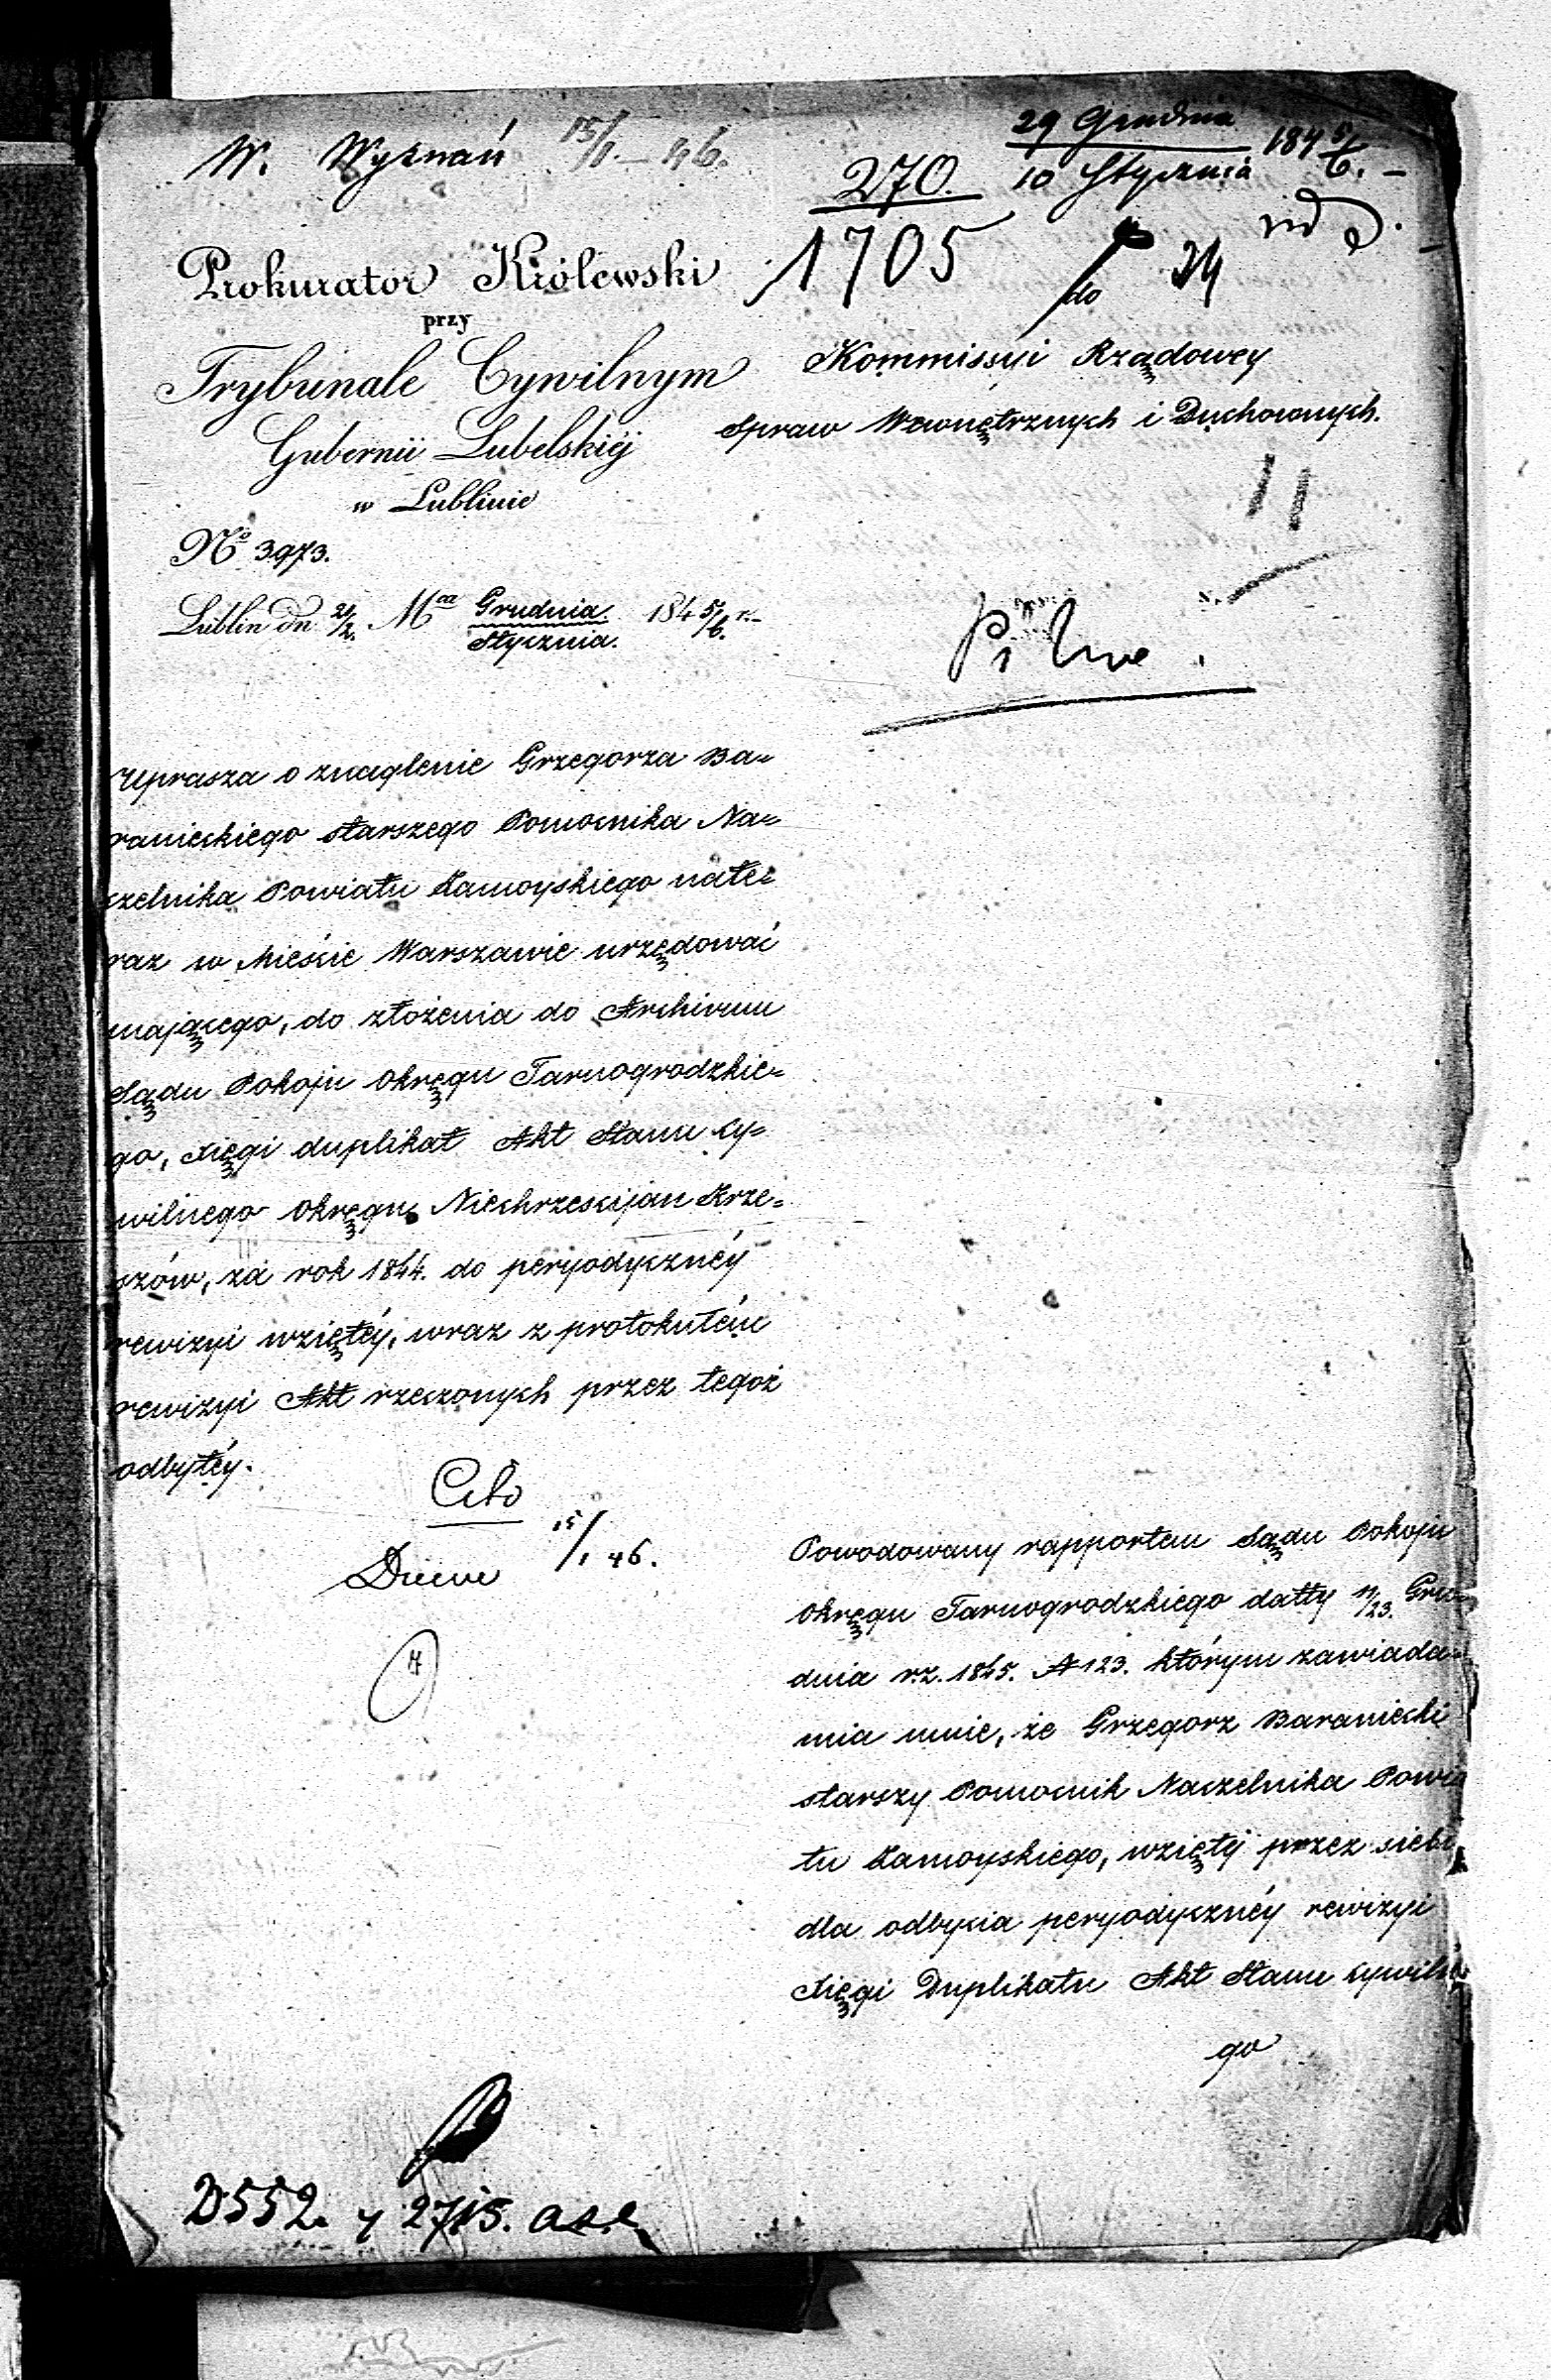 W. Wyznań 15/1. – 46.
29 Grudnia
10 Stycznia 184 5/6. –
270.
1705
24
Prokurator Królewski
przy
Trybunale Cywilnym
Gubernii Lubelskiéj
w Lublinie
No 3973.
Lublin dn 21/2. Mca Grudnia./Stycznia. 184 5/6. r.–
do
Kommissyi Rządowey
Spraw Wewnętrznych i Duchownych.
Pilne.
Uprasza o znaglenie Grzegorza Ba=
ranieckiego starszego Pomocnika Na=
czelnika Powiatu Zamoyskiego nate=
raz w Mieście Warszawie urzędować
mającego, do złożenia do Archivum
Sądu Pokoju Okręgu Tarnogrodzkie=
go, xięgi duplikat Akt Stanu Cy=
wilnego Okręgu Niechrześcijan Krze=
szów, za rok 1844. do peryodycznéy
rewizyi wziętéy, wraz z protokułém
rewizyi Akt rzeczonych przez tegoż
odbytéy.
Cito
15/1 46.
Powodowany rapportem Sądu Pokoju
Okręgu Tarnogrodzkiego datty 11/23. Gru=
dnia r.z. 1845. N 123. którym zawiada=
mia mnie, że Grzegorz Baraniecki
starszy Pomocnik Naczelnika Powia
tu Zamoyskiego, wziętéj przez siebie
dla odbycia peryodycznéy rewizyi
xięgi Duplikatu Akt Stanu cywilne
go
D552. y 27/15.